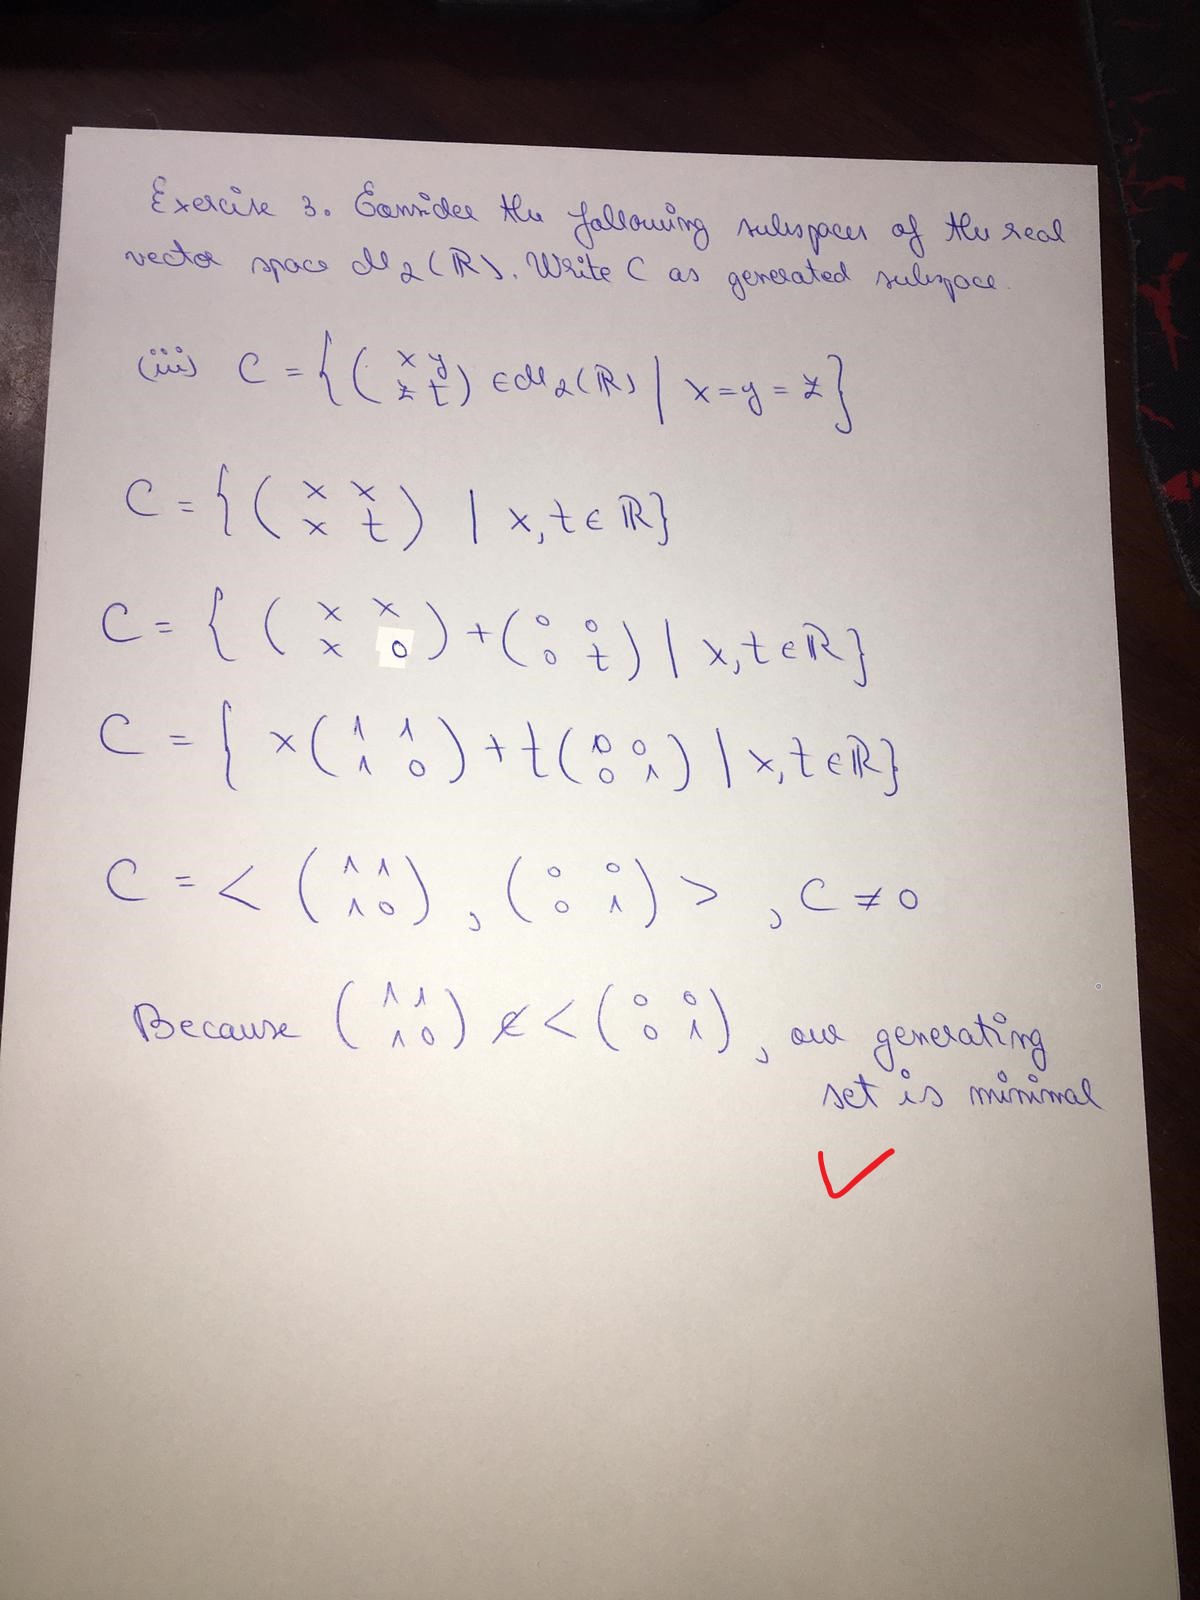 Exercise 3. Consider the following subspaces of the real
vector space M2(ℝ). Write C as generated subspace.
(iii) C = {( x y
z t ) ∈ M2(ℝ) | x = y = z}
C = {( x x
x t ) | x, t ∈ ℝ}
C = {( x x
x 0 ) + ( 0 0
0 t ) | x, t ∈ ℝ}
C = { x( 1 1
1 0 ) + t( 0 0
0 1 ) | x, t ∈ ℝ}
C = < ( 1 1
1 0 ), ( 0 0
0 1 ) > , C ≠ 0
Because ( 1 1
1 0 ) ∉ < ( 0 0
0 1 ), our generating
set is minimal